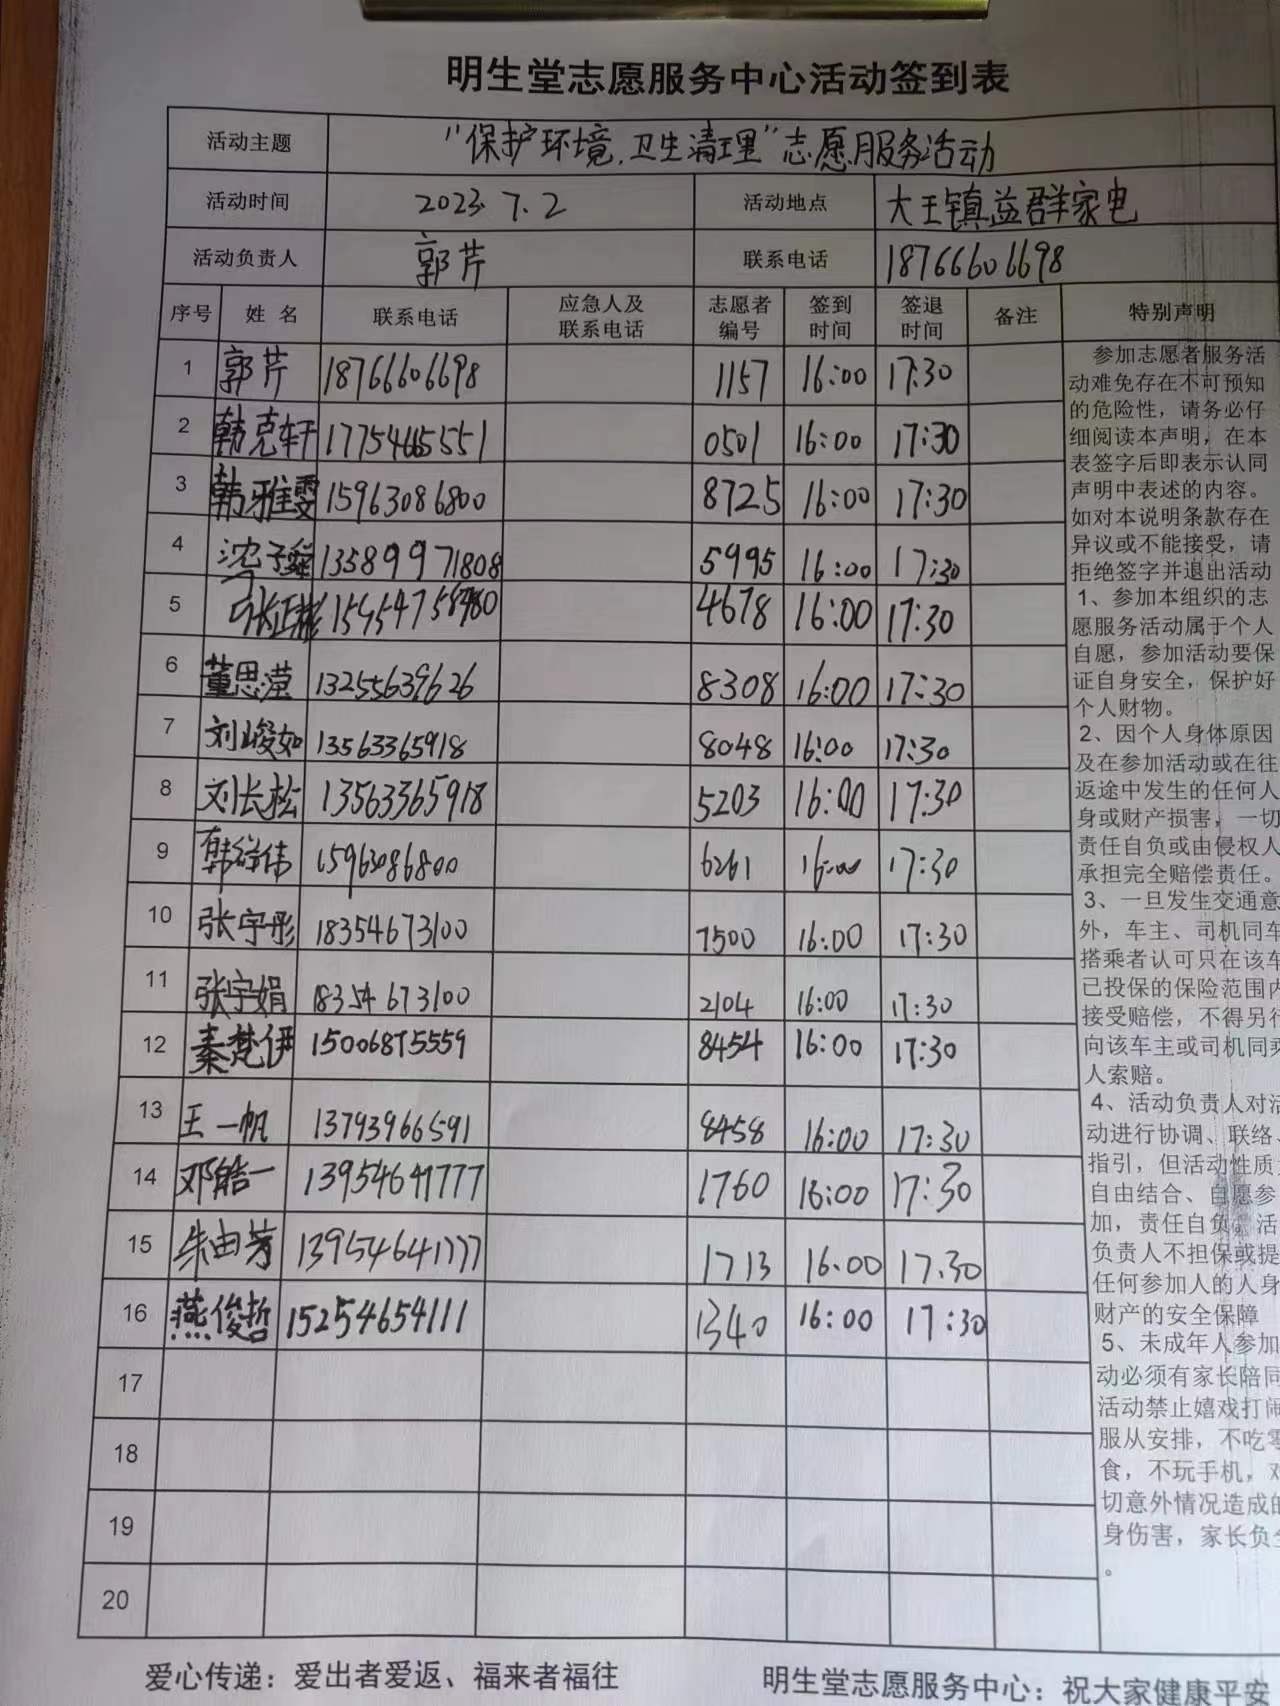 明生堂志愿服务中心活动签到表
活动主题 “保护环境.卫生清理”志愿服务活动
活动时间 2023.7.2 活动地点 大王镇益群家电
活动负责人 郭芹 联系电话 18766606698
序号 姓名 联系电话 应急人及联系电话 志愿者编号 签到时间 签退时间 备注 特别声明
1 郭芹 18766606698 1157 16:00 17:30
2 韩克轩 17754665551 0501 16:00 17:30
3 韩雅雯 15963086800 8725 16:00 17:30
4 13589971808 5995 16:00 17:30
5 张正彬 4678 16:00 17:30
6 董思滢 13255639626 8308 16:00 17:30
7 刘峻如 13563365918 8048 16:00 17:30
8 刘长松 13563365918 5203 16:00 17:30
9 15963086800 6261 16:00 17:30
10 张宇彤 18354673100 7500 16:00 17:30
11 张宇娟 18354673100 2104 16:00 17:30
12 秦梵伊 15006875559 8454 16:00 17:30
13 王一帆 13793966591 8458 16:00 17:30
14 邓皓一 13954641777 1760 16:00 17:30
15 朱由芳 13954641777 1713 16.00 17.30
16 燕俊哲 15254654111 1340 16:00 17:30
17
18
19
20
参加志愿者服务活
动难免存在不可预知
的危险性，请务必仔
细阅读本声明，在本
表签字后即表示认同
声明中表述的内容。
如对本说明条款存在
异议或不能接受，请
拒绝签字并退出活动
1、参加本组织的志
愿服务活动属于个人
自愿，参加活动要保
证自身安全，保护好
个人财物。
2、因个人身体原因
及在参加活动或在往
返途中发生的任何人
身或财产损害，一切
责任自负或由侵权人
承担完全赔偿责任。
3、一旦发生交通意
外，车主、司机同车
搭乘者认可只在该车
已投保的保险范围内
接受赔偿，不得另行
向该车主或司机同乘
人索赔。
4、活动负责人对活
动进行协调、联络、
指引，但活动性质
自由结合、自愿参
加，责任自负。活
负责人不担保或提
任何参加人的人身
财产的安全保障
5、未成年人参加
动必须有家长陪同
活动禁止嬉戏打闹
服从安排，不吃零
食，不玩手机，对
切意外情况造成的
身伤害，家长负全
。
爱心传递：爱出者爱返、福来者福往 明生堂志愿服务中心：祝大家健康平安